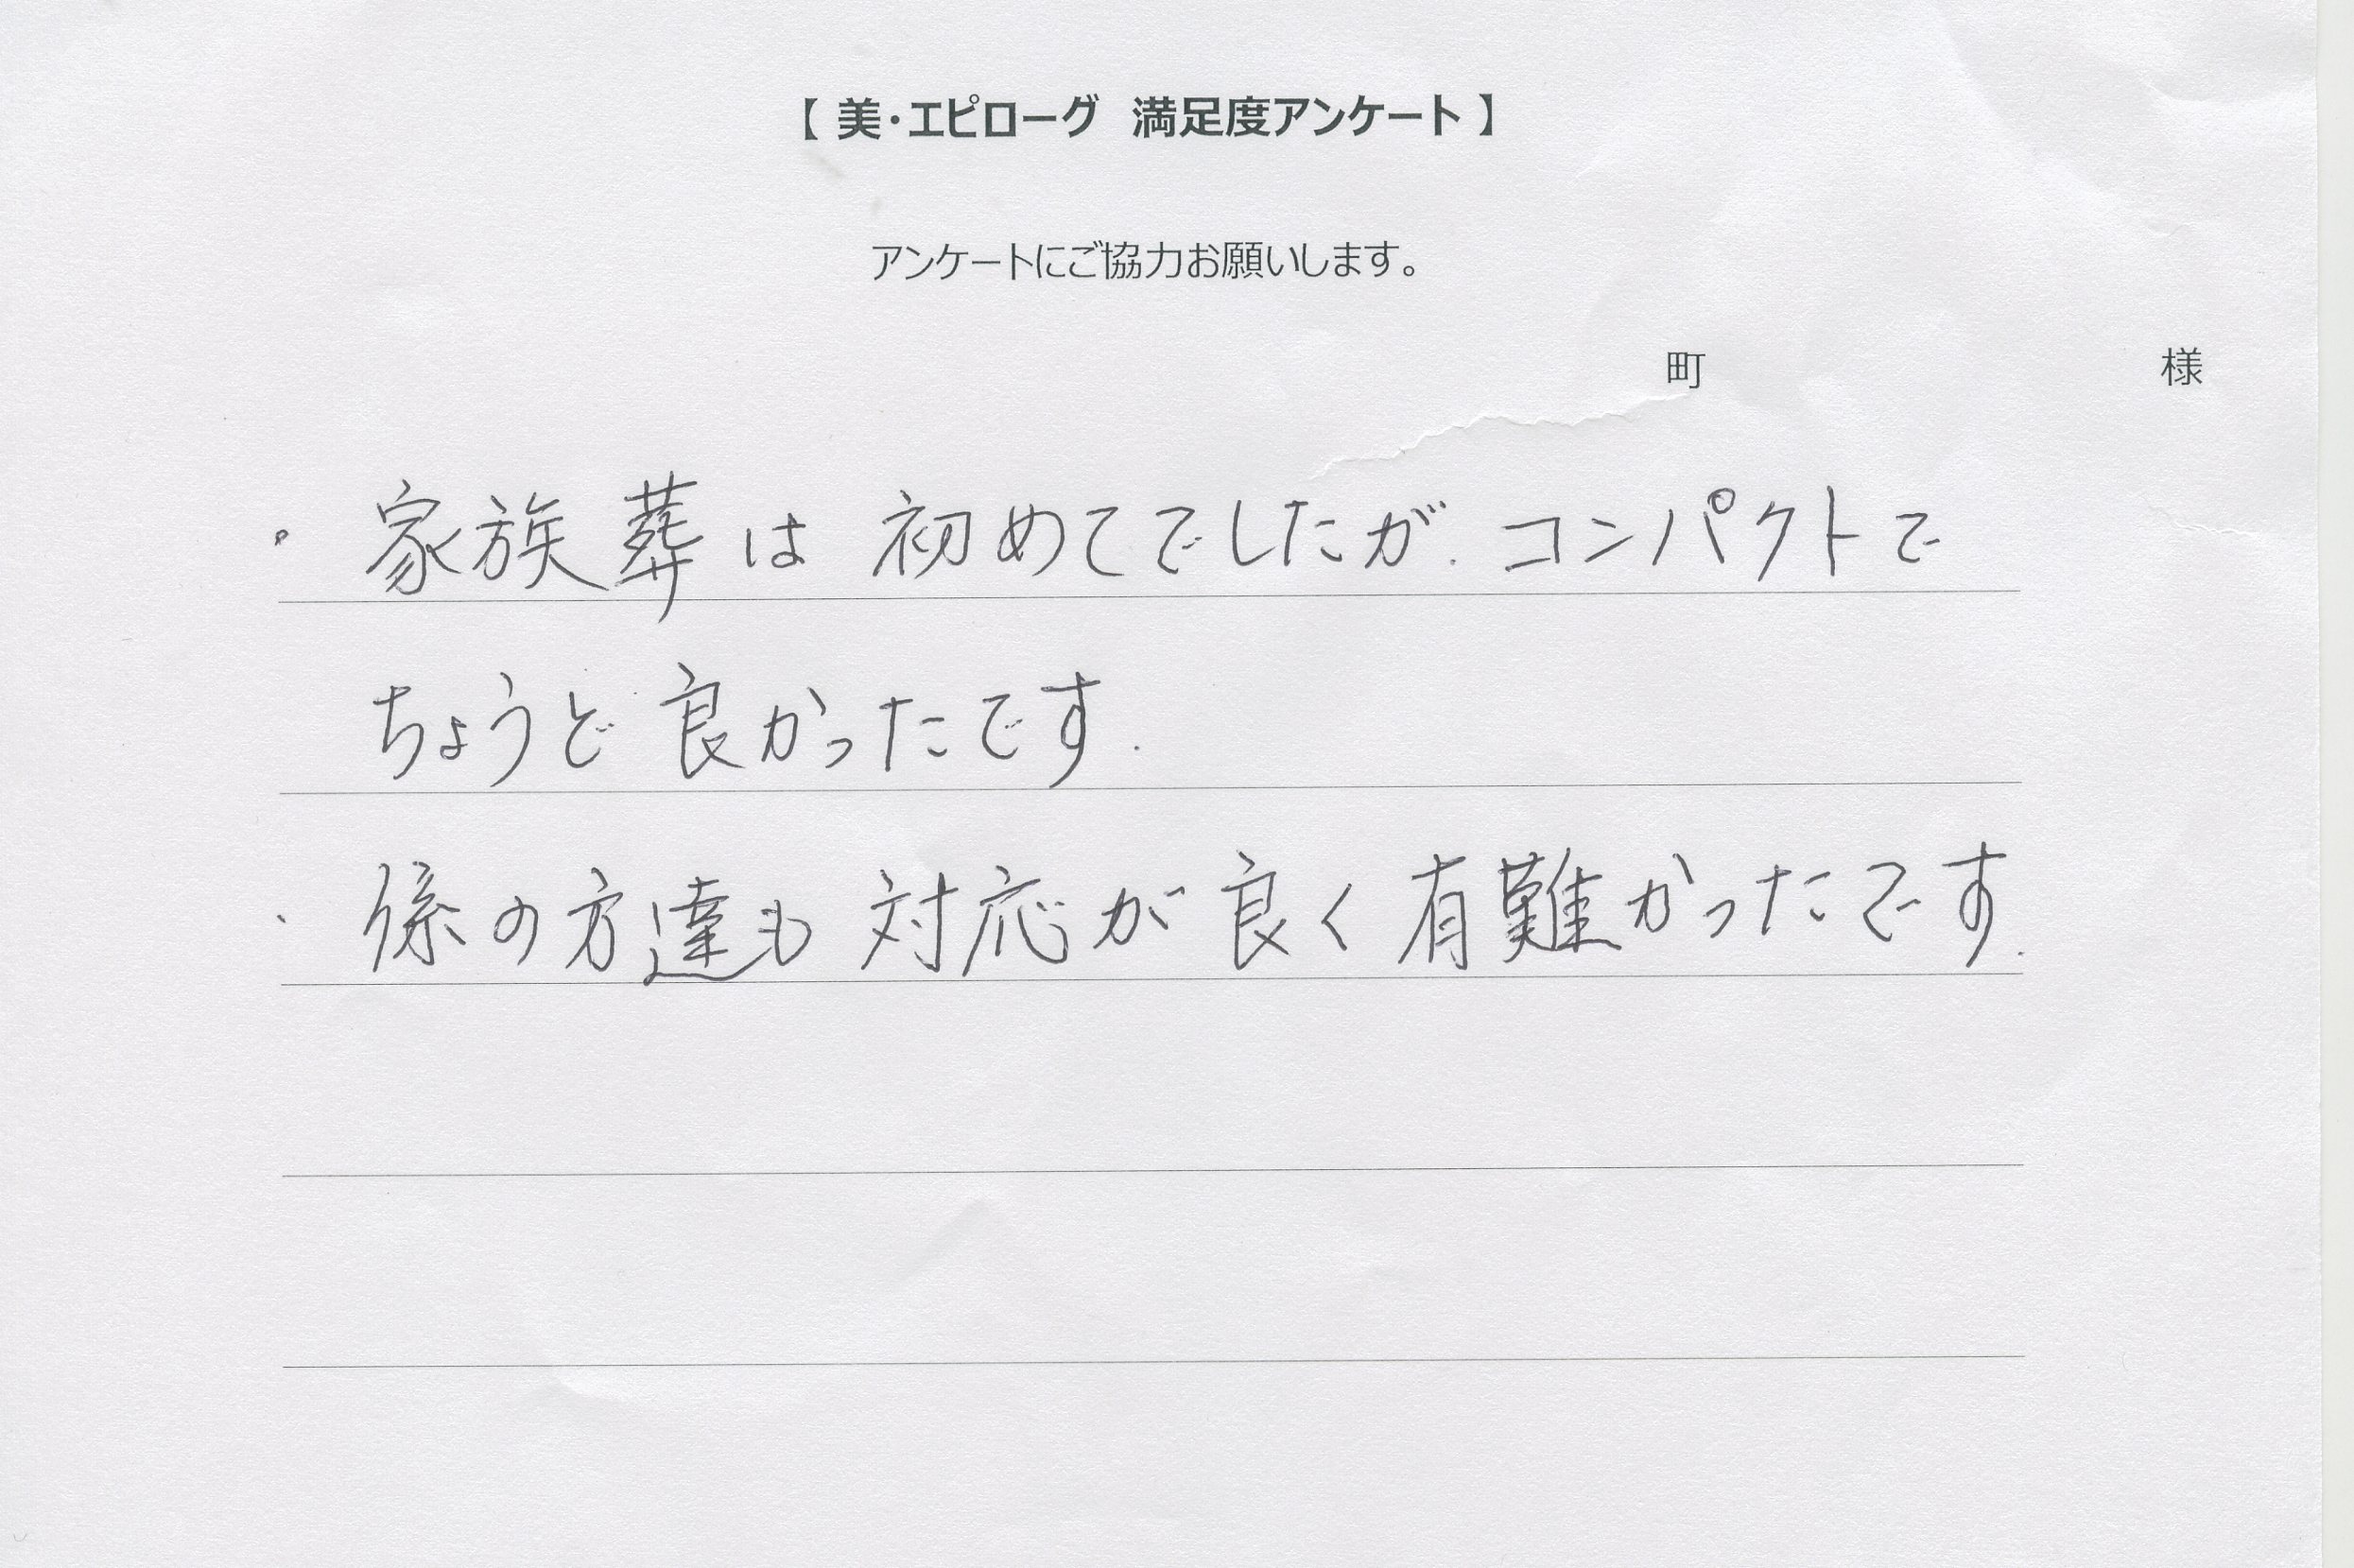 【 美・エピローグ　満足度アンケート 】
アンケートにご協力お願いします。
町　様
・ 家族葬は 初めてでしたが、コンパクトで
ちょうど良かったです.
・ 係の方達も 対応が良く有難かったです.